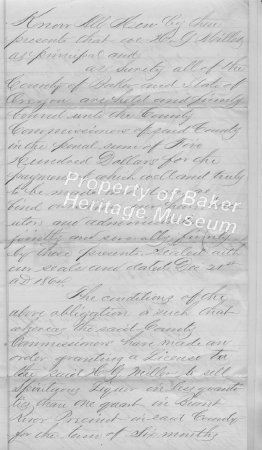 Know All Men by these
presents that we H. G. Willis
as principal and
as surety all of the
County of Baker and State of
Oregon are held and firmly
bound unto the County
Commissioners of said County
in the penal sum of Five
Hundred Dollars for the
payment of which well and truly
to be made
bind our
and
jointly and severally firmly
by these presents sealed with
our seals and dated Dec 21st
AD 1864
The conditions of the
above obligation is such that
whereas the said County
Commissioners have made an
order granting a License to
the said H. G. Willis to sell
Spirituous Liquor in less quanti-
ties than one quart in Burnt
River Precinct in said County
for the term of Six months
Property of Baker
Heritage Museum